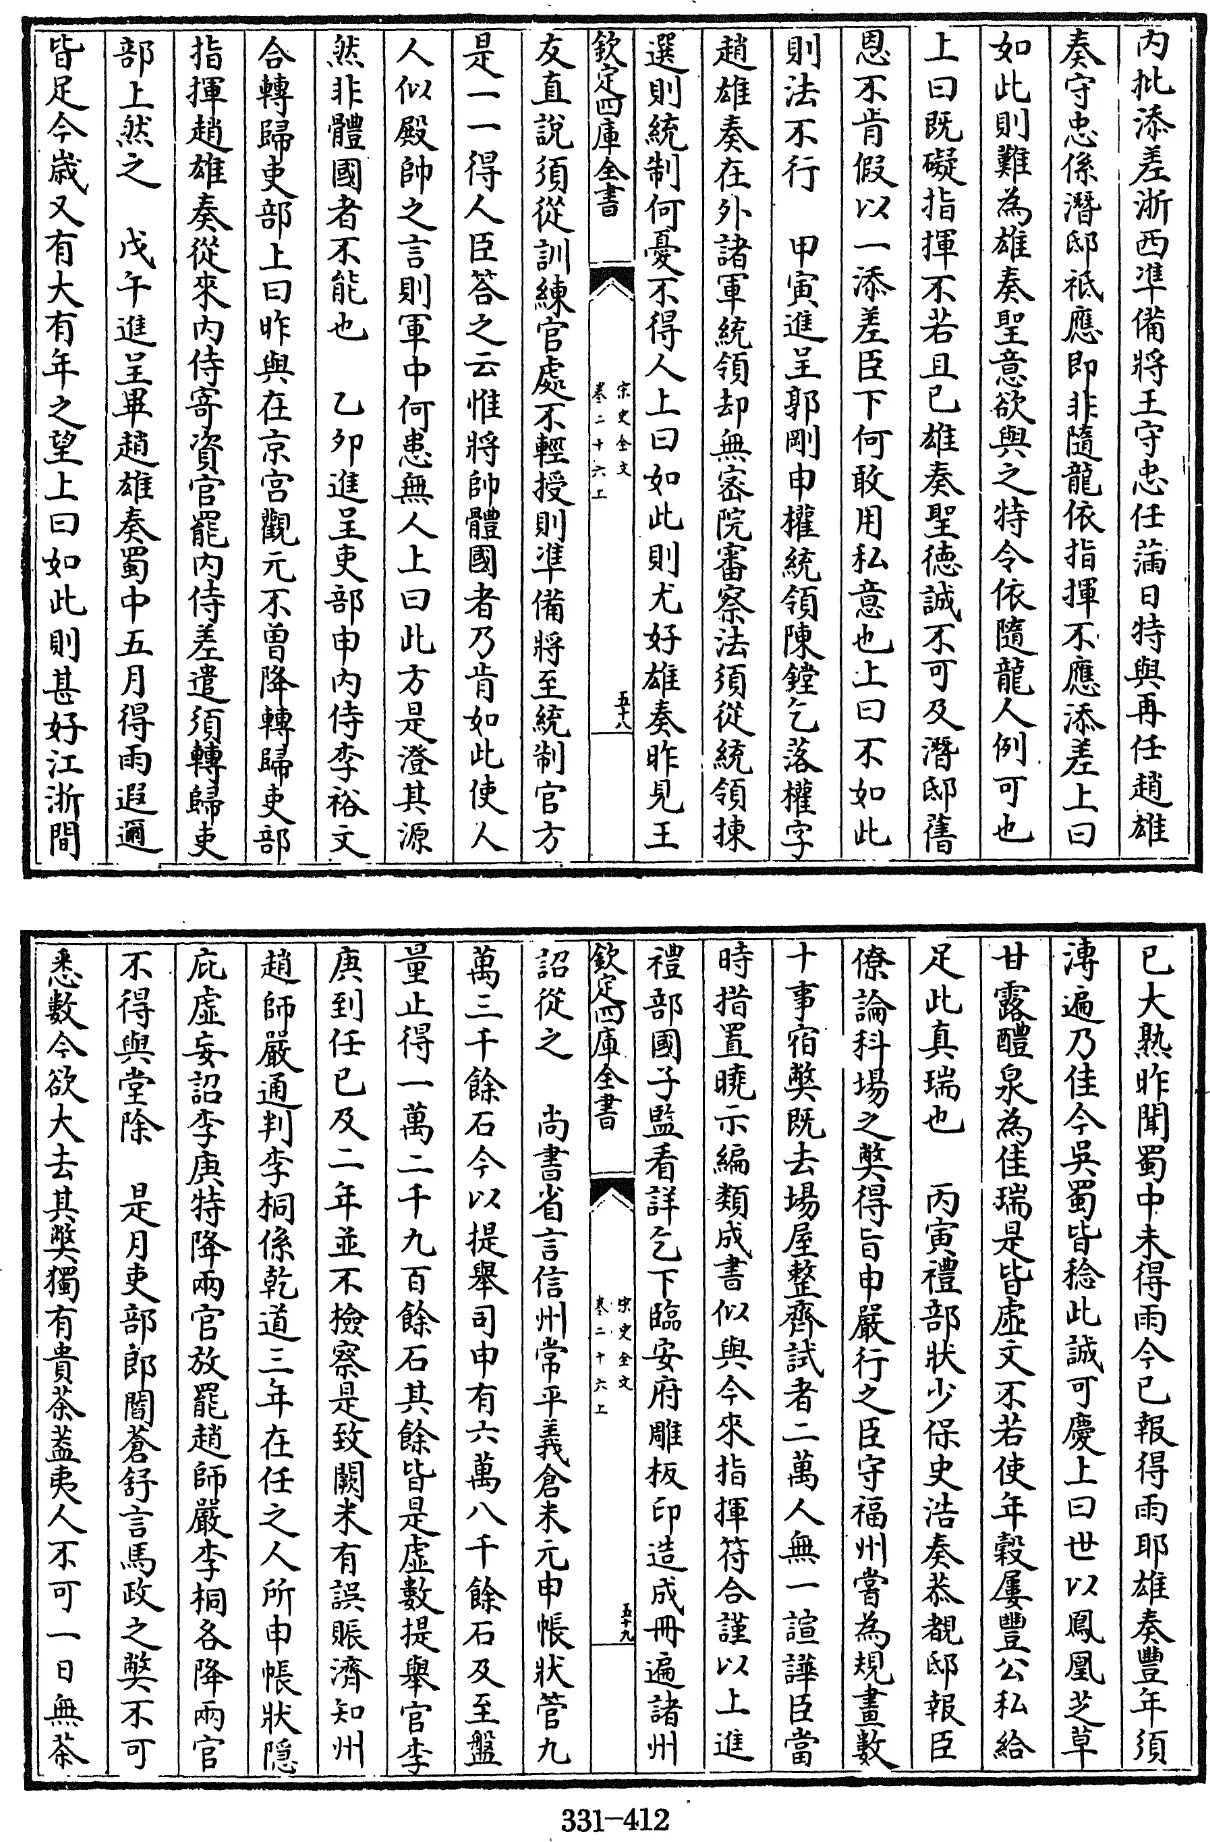 内批添差浙西準備將王守忠任滿日特與再任趙雄
奏守忠係潛邸祗應即非隨龍依指揮不應添差上曰
如此則難為雄奏聖意欲與之特令依隨龍人例可也
上曰既礙指揮不若且已雄奏聖德誠不可及潛邸舊
恩不肯假以一添差臣下何敢用私意也上曰不如此
則法不行　甲寅進呈郭剛申權統領陳鏜乞落權字
趙雄奏在外諸軍統領却無密院審察法須從統領揀
選則統制何憂不得人上曰如此則尤好雄奏昨見王
欽定四庫全書
宋史全文
卷二十六上
五十八
友直說須從訓練官處不輕授則準備將至統制官方
是一一得人臣答之云惟將帥體國者乃肯如此使人
人似殿帥之言則軍中何患無人上曰此方是澄其源
然非體國者不能也　乙夘進呈吏部申内侍李裕文
合轉歸吏部上曰昨與在京宮觀元不曾降轉歸吏部
指揮趙雄奏從來内侍寄資官罷内侍差遣須轉歸吏
部上然之　戊午進呈畢趙雄奏蜀中五月得雨遐邇
皆足今歲又有大有年之望上曰如此則甚好江浙間
已大熟昨聞蜀中未得雨今已報得雨耶雄奏豐年須
溥遍乃佳今吳蜀皆稔此誠可慶上曰世以鳳凰芝草
甘露醴泉為佳瑞是皆虛文不若使年穀屢豐公私給
足此真瑞也　丙寅禮部狀少保史浩奏恭覩邸報臣
僚論科場之弊得旨申嚴行之臣守福州嘗為規畫數
十事宿弊既去場屋整齊試者二萬人無一諠譁臣當
時措置曉示編類成書似與今來指揮符合謹以上進
禮部國子監看詳乞下臨安府雕板印造成冊遍諸州
欽定四庫全書
宋史全文
卷二十六上
五十九
詔從之　尚書省言信州常平義倉米元申帳狀管九
萬三千餘石今以提舉司申有六萬八千餘石及至盤
量止得一萬二千九百餘石其餘皆是虛數提舉官李
庚到任已及二年並不檢察是致闕米有誤賑濟知州
趙師嚴通判李桐係乾道三年在任之人所申帳狀隱
庇虛妄詔李庚特降兩官放罷趙師嚴李桐各降兩官
不得與堂除　是月吏部郎閻蒼舒言馬政之弊不可
悉數今欲大去其弊獨有貴茶葢夷人不可一日無茶
331-412